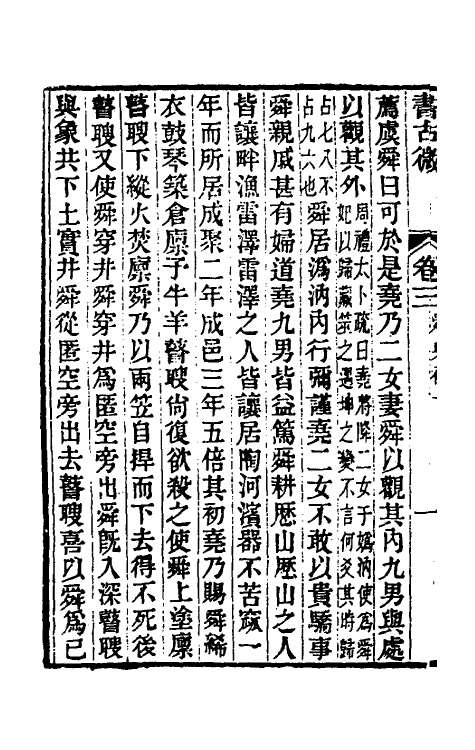 書古微 卷三 一
薦虞舜曰可於是堯乃二女妻舜以觀其內九男與處
以觀其外周禮太卜疏曰堯將降二女于嬀汭使爲舜
妃以歸藏筮之遇坤之變不言何爻其時歸
占七八不
占九六也舜居潙汭內行彌謹堯二女不敢以貴驕事
舜親戚甚有婦道堯九男皆益篤舜耕歷山歷山之人
皆讓畔漁雷澤雷澤之人皆讓居陶河濱器不苦窳一
年而所居成聚二年成邑三年五倍其初堯乃賜舜絺
衣鼓琴築倉廩予牛羊瞽瞍尙復欲殺之使舜上塗廩
瞽瞍下縱火焚廩舜乃以兩笠自捍而下去得不死後
瞽瞍又使舜穿井舜穿井爲匿空旁出舜旣入深瞽瞍
與象共下土實井舜從匿空旁出去瞽瞍喜以舜爲已